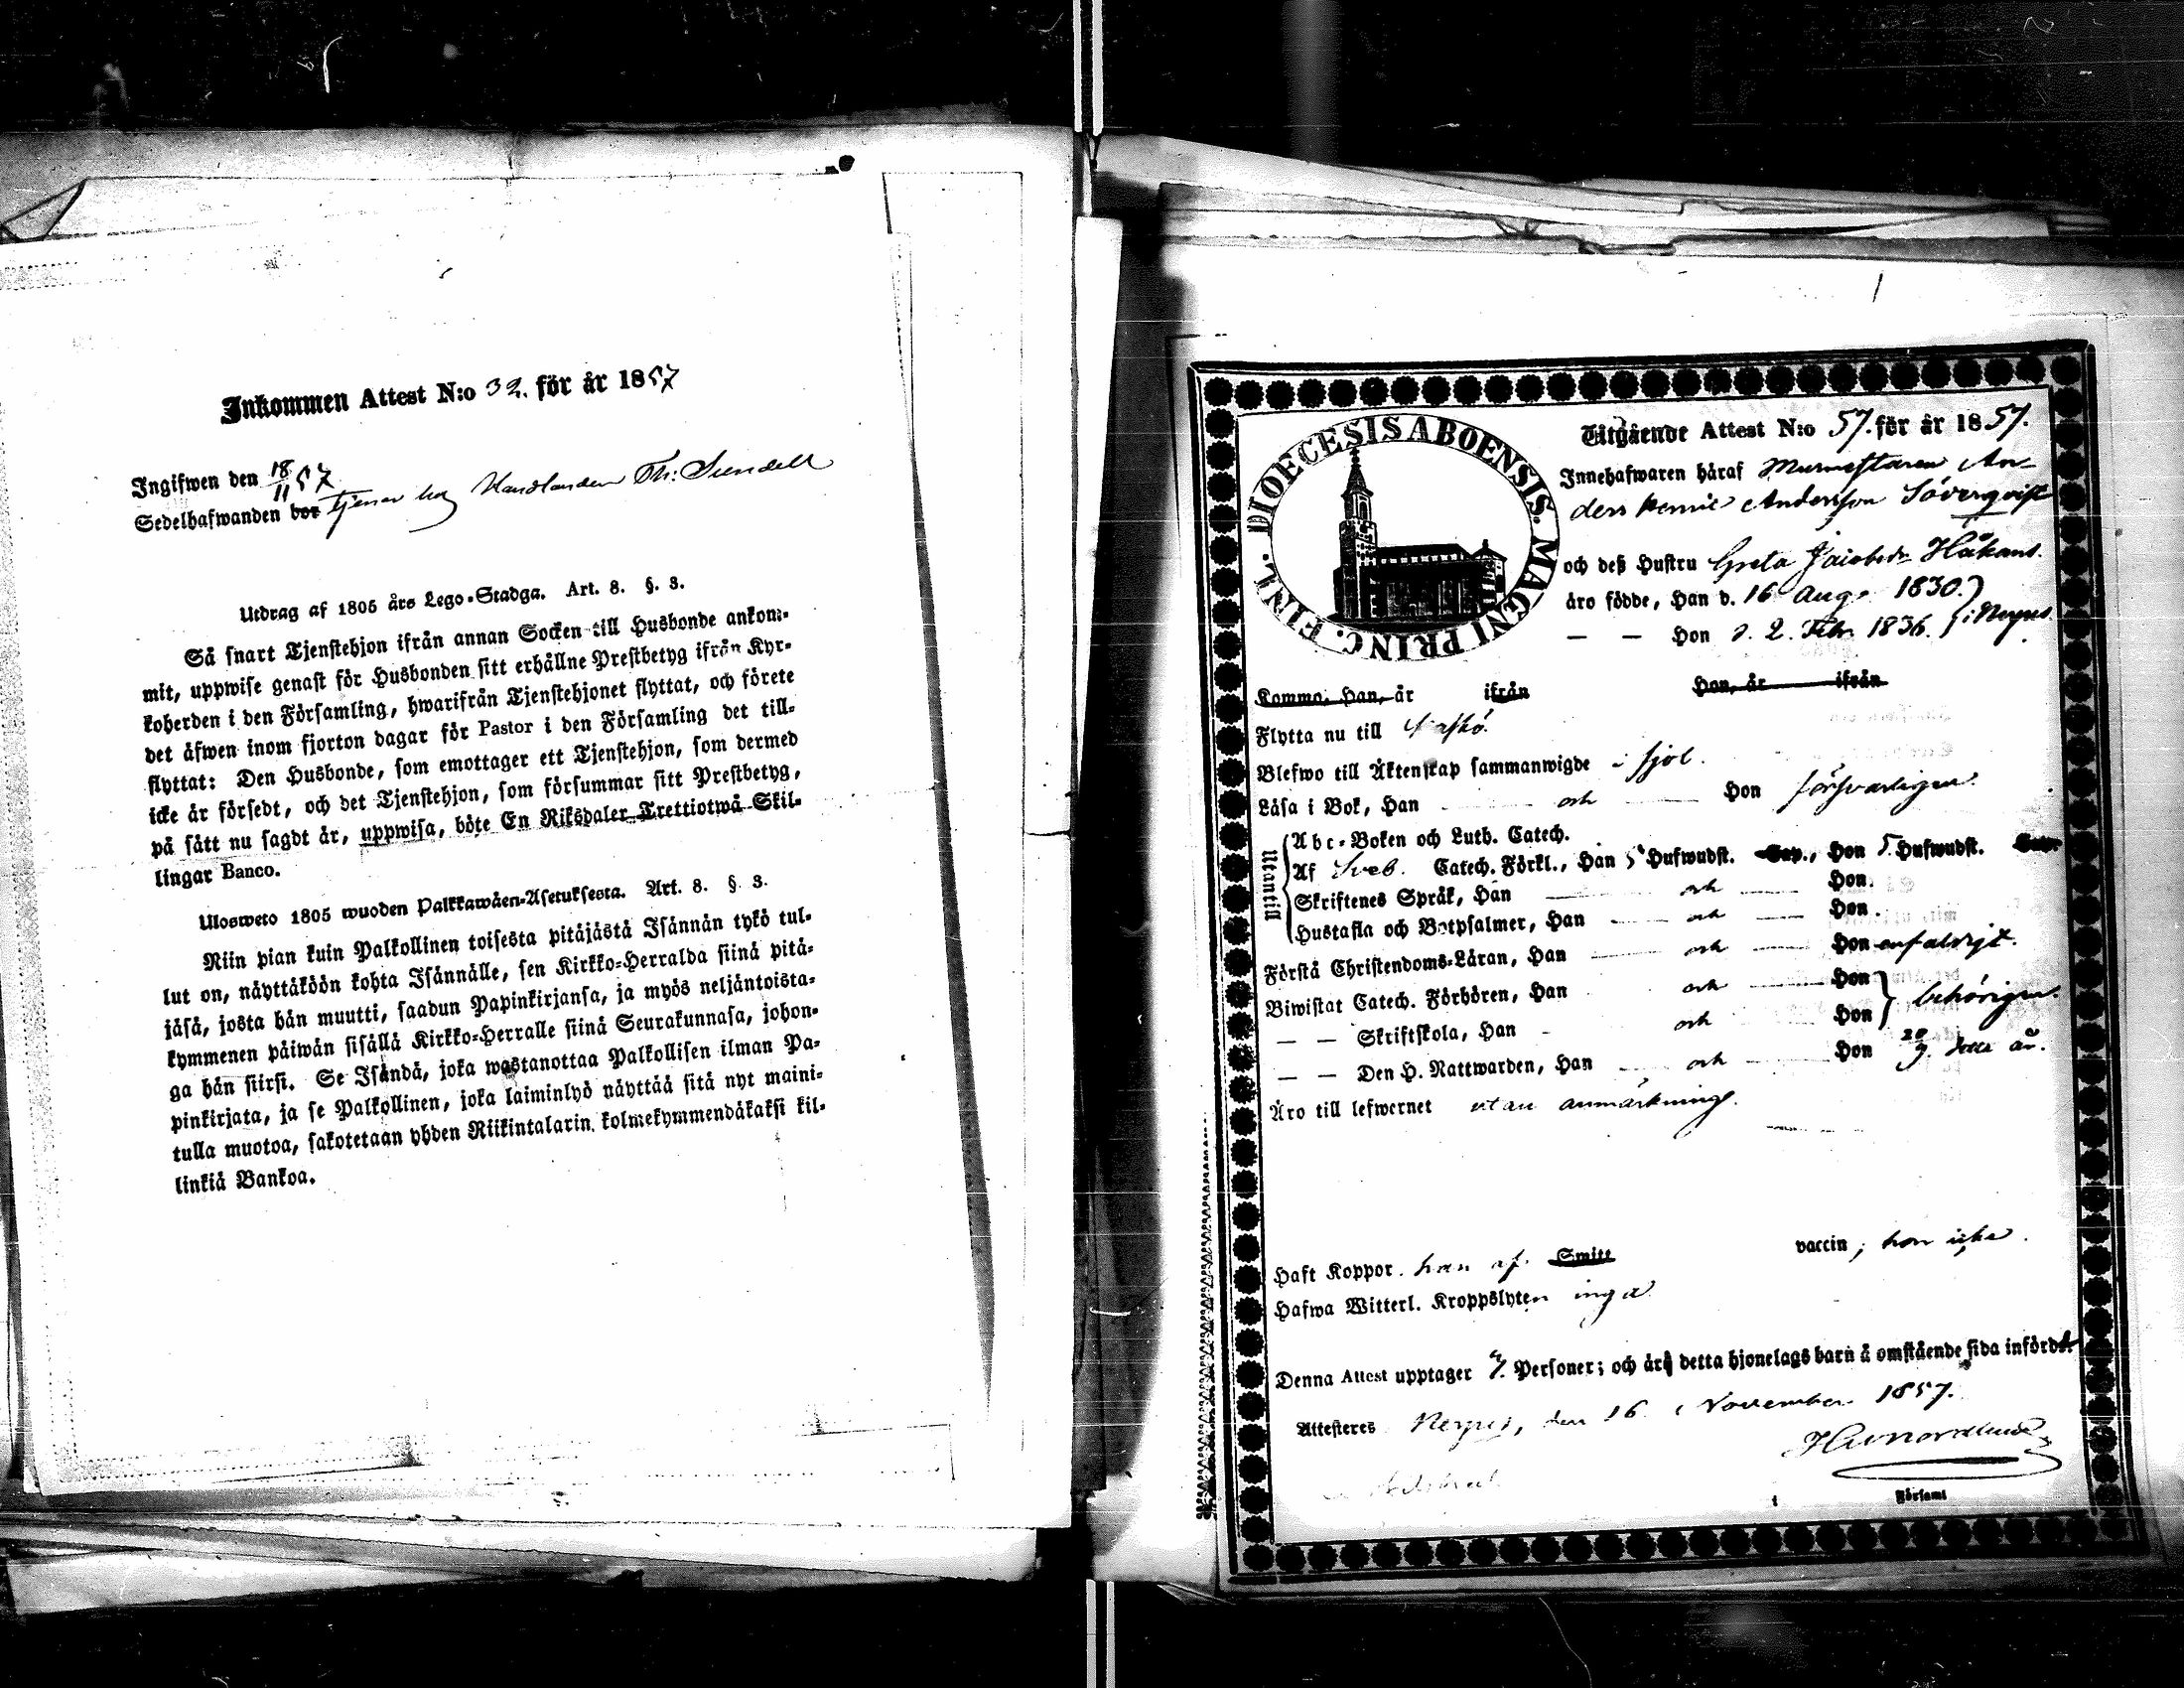 Inkommen Attest N:o 32. för år 1857
Ingifwen den 18/11 57
Sedelhafwanden bor tjenar hos Handlanden Th: Sundell
Utdrag af 1805 års Lego-Stadga. Art. 8. §. 3.
Så snart Tjenstehjon ifrån annan Socken till Husbonde ankom-
mit, uppwise genast för Husbonden sitt erhållne Prestbetyg ifrån Kyr-
koherden i den Församling, hwarifrån Tjenstehjonet flyttat, och förete
det äfwen inom fjorton dagar för Pastor i den Församling det till-
flyttat: Den Husbonde, som emottager ett Tjenstehjon, som dermed
icke är försedt, och det Tjenstehjon, som försummar sitt Prestbetyg,
på sätt nu sagdt är, uppwisa, böte En Riksdaler Trettiotwå Skil-
lingar Banco.
Ulosweto 1805 wuoden Palkkawäen-Asetuksesta. Art. 8. §. 3.
Niin pian kuin Palkollinen toisesta pitäjästä Isännän tykö tul-
lut on, näyttäköön kohta Isännälle, sen Kirkko-Herralda siinä pitä-
jäsä, josta hän muutti, saadun Papinkirjansa, ja myös neljäntoista-
kymmenen päiwän sisällä Kirkko-Herralle siinä Seurakunnasa, johon-
ga hän siirsi. Se Isändä, joka wastanottaa Palkollisen ilman Pa-
pinkirjata, ja se Palkollinen, joka laiminlyö näyttää sitä nyt maini-
tulla muotoa, sakotetaan yhden Riikintalarin kolmekymmendäkaksi kil-
linkiä Bankoa.
DIOECESIS ABOENSIS. MAGNI PRINC. FINL.
Utgående Attest N:o 57. för år 1857.
Innehafwaren häraf Murmästaren An-
ders Andersson Söverqvist
och deß Hustru Greta Jacobsdr Håkans.
äro födde, Han d. 16 Aug. 1830. } i Nerpes
— — Hon d. 2. Febr. 1836.
Komma, Han, år ifrån Hon, år ifrån
Flytta nu till Kaskö.
Blefwo till Äktenskap sammanwigde i fjol.
Läsa i Bok, Han och Hon försvarligen.
Utantill
Abc-Boken och Luth. Catech.
Af Sveb. Catech. Förkl., Han 5 Hufwudst. Cap., Hon 5. Hufwudst. Cap.
Skriftenes Språk, Han och Hon.
Hustafla och Botpsalmer, Han och Hon.
Förstå Christendoms-Läran, Han och Hon enfaldigt.
Biwistat Catech. Förhören, Han och Hon } behörigen.
— — Skriftskola, Han och Hon
— — Den H. Nattwarden, Han och Hon 20/9 detta år.
Äro till lefwernet utan anmärkning.
Haft Koppor han af Smitt vaccin; hon icke.
Hafwa Witterl. Kroppslyten inga
Denna Attest upptager Personer; och äro detta hjonelags barn å omstående sida införde.
Attesteres Nerpes, den 16 November 1857.
H. Nordlund
Församl